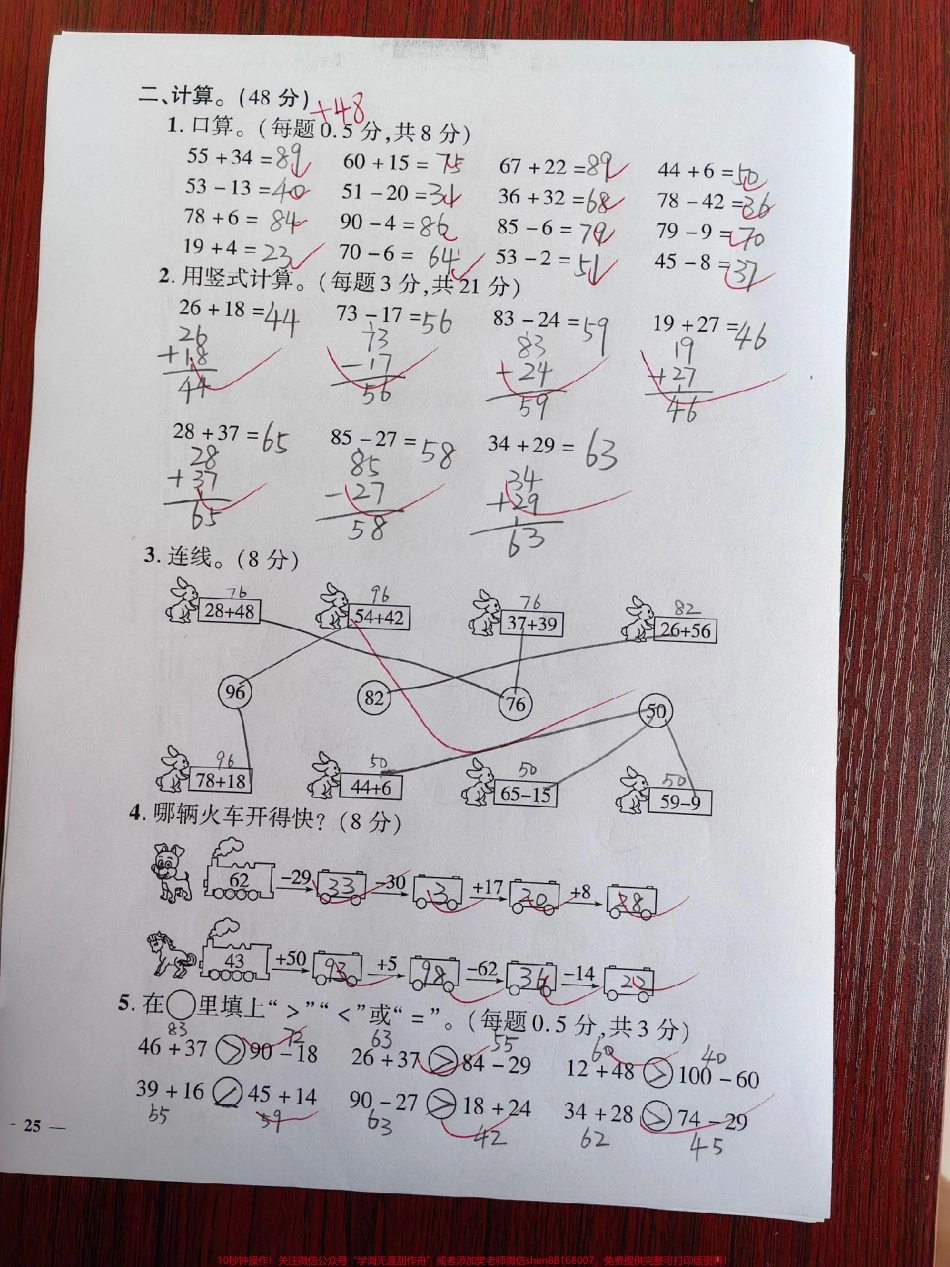 二、计算。(48 分) +48
1. 口算。(每题0.5分,共8分)
55 + 34 = 89 60 + 15 = 75 67 + 22 = 89 44 + 6 = 50
53 - 13 = 40 51 - 20 = 31 36 + 32 = 68 78 - 42 = 36
78 + 6 = 84 90 - 4 = 86 85 - 6 = 79 79 - 9 = 70
19 + 4 = 23 70 - 6 = 64 53 - 2 = 51 45 - 8 = 37
2. 用竖式计算。(每题3分,共21分)
26 + 18 = 44 73 - 17 = 56 83 - 24 = 59 19 + 27 = 46
26 73 83 19
+18 -17 -24 +27
44 56 59 46
28 + 37 = 65 85 - 27 = 58 34 + 29 = 63
28 85 34
+37 -27 +29
65 58 63
3. 连线。(8分)
76 96 76 82
28+48 54+42 37+39 26+56
96 82 76 50
96 50 50 50
78+18 44+6 65-15 59-9
4. 哪辆火车开得快?(8分)
62 -29 33 -30 3 +17 20 +8 28
43 +50 93 +5 98 -62 36 -14 22
5. 在○里填上“>”“<”或“=”。(每题0.5分,共3分)
83 72 63 55 60 40
46 + 37 > 90 - 18 26 + 37 > 84 - 29 12 + 48 > 100 - 60
39 + 16 < 45 + 14 90 - 27 > 18 + 24 34 + 28 > 74 - 29
55 59 63 42 62 45
- 25 —
10秒钟操作!关注微信公众号“学海无涯甜作舟”或者添加吴老师微信shen88168007,免费提供完整可打印版资料!